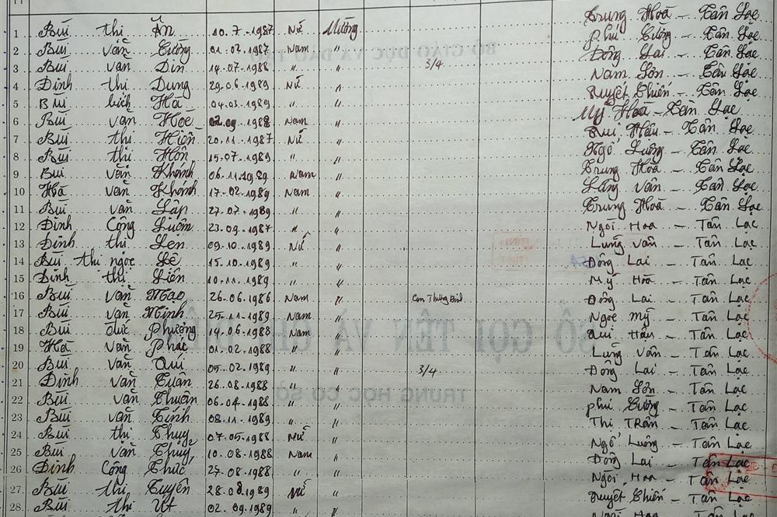 1 Bùi thị Ăn 10.7.1987 Nữ Mường Trung Hoà - Tân Lạc
2 Bùi văn Cường 01.02.1987 Nam " Phú Cường - Tân Lạc
3 Bùi văn Din 14.07.1988 " " 3/4 Đông Lai - Tân Lạc
4 Đinh thị Dung 29.06.1989 Nữ " Nam Sơn - Tân Lạc
5 Bùi bích Hà 04.03.1989 " " Quyết Chiến - Tân Lạc
6 Bùi văn 02.09.1988 Nam " Mỹ Hoà - Tân Lạc
7 Bùi thị Hiện 20.11.1987 Nữ " Qui Hậu - Tân Lạc
8 Bùi thị 15.07.1989 " " Ngổ Luông - Tân Lạc
9 Bùi văn Khánh 06.11.1989 Nam " Trung Hoà - Tân Lạc
10 Hà văn Khánh 17.02.1989 Nam " Lũng Vân - Tân Lạc
11 Bùi văn Lập 27.07.1989 " " Trung Hoà - Tân Lạc
12 Đinh Công 23.09.1987 " " Ngòi Hoa - Tân Lạc
13 Đinh thị Len 09.10.1989 Nữ " Lũng Vân - Tân Lạc
14 Bùi thị ngọc Lê 15.10.1989 " " Đông Lai - Tân Lạc
15 Đinh thị Liên 10.11.1989 " " Mỹ Hoà - Tân Lạc
16 Bùi văn 26.06.1986 Nam " Con Thương Binh Đông Lai - Tân Lạc
17 Bùi văn Minh 25.11.1989 Nam " Ngọc Mỹ - Tân Lạc
18 Bùi đức Phượng 14.06.1988 Nam " Qui Hậu - Tân Lạc
19 Hà văn 01.02.1988 " " Lũng Vân - Tân Lạc
20 Bùi văn Quí 05.02.1989 " " 3/4 Đông Lai - Tân Lạc
21 Đinh văn Tuân 26.08.1988 " " Nam Sơn - Tân Lạc
22 Bùi văn Thuận 06.04.1988 " " Phú Cường - Tân Lạc
23 Bùi văn Tính 08.11.1989 " " Thị Trấn - Tân Lạc
24 Bùi thị Thuỷ 07.05.1988 Nữ " Ngổ Luông - Tân Lạc
25 Bùi văn Thuỷ 10.08.1988 Nam " Đông Lai - Tân Lạc
26 Đinh Công Thức 27.08.1988 " " Ngòi Hoa - Tân Lạc
27 Bùi thị Tuyên 28.08.1989 Nữ " Quyết Chiến - Tân Lạc
28 Bùi thị Út 02.09.1989 " " Ngòi Hoa - Tân Lạc